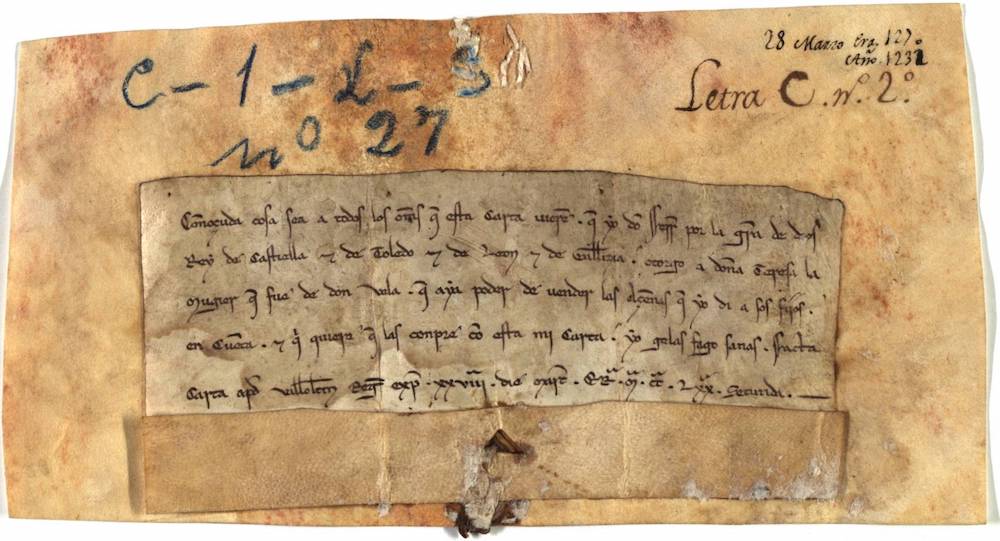 28 Marzo Era 1270
Año 1232
Letra C. nº. 2º.
C - 1 - L - 3
nº 27
Conoçuda cosa sea a todos los om̃s q̃ esta Carta uierẽ. q̃ yo dõ Fferr̃. por la gr̃a de dios
Rey de Castiella ⁊ de Toledo ⁊ de Leon ⁊ de Gallizia. otorgo a doña Teresa la
mugier q̃ fue de don Vela. q̃ aya poder de uender las açenas q̃ yo di a sos fijos.
en Cueta. ⁊ qi quiere q̃ las conpre cõ esta mi Carta. yo gelas fago sanas. Facta
Carta apd̃ Reg̃ exp̃. xxviii. die mart̃. Era. M. CC. Lxx. Secunda.